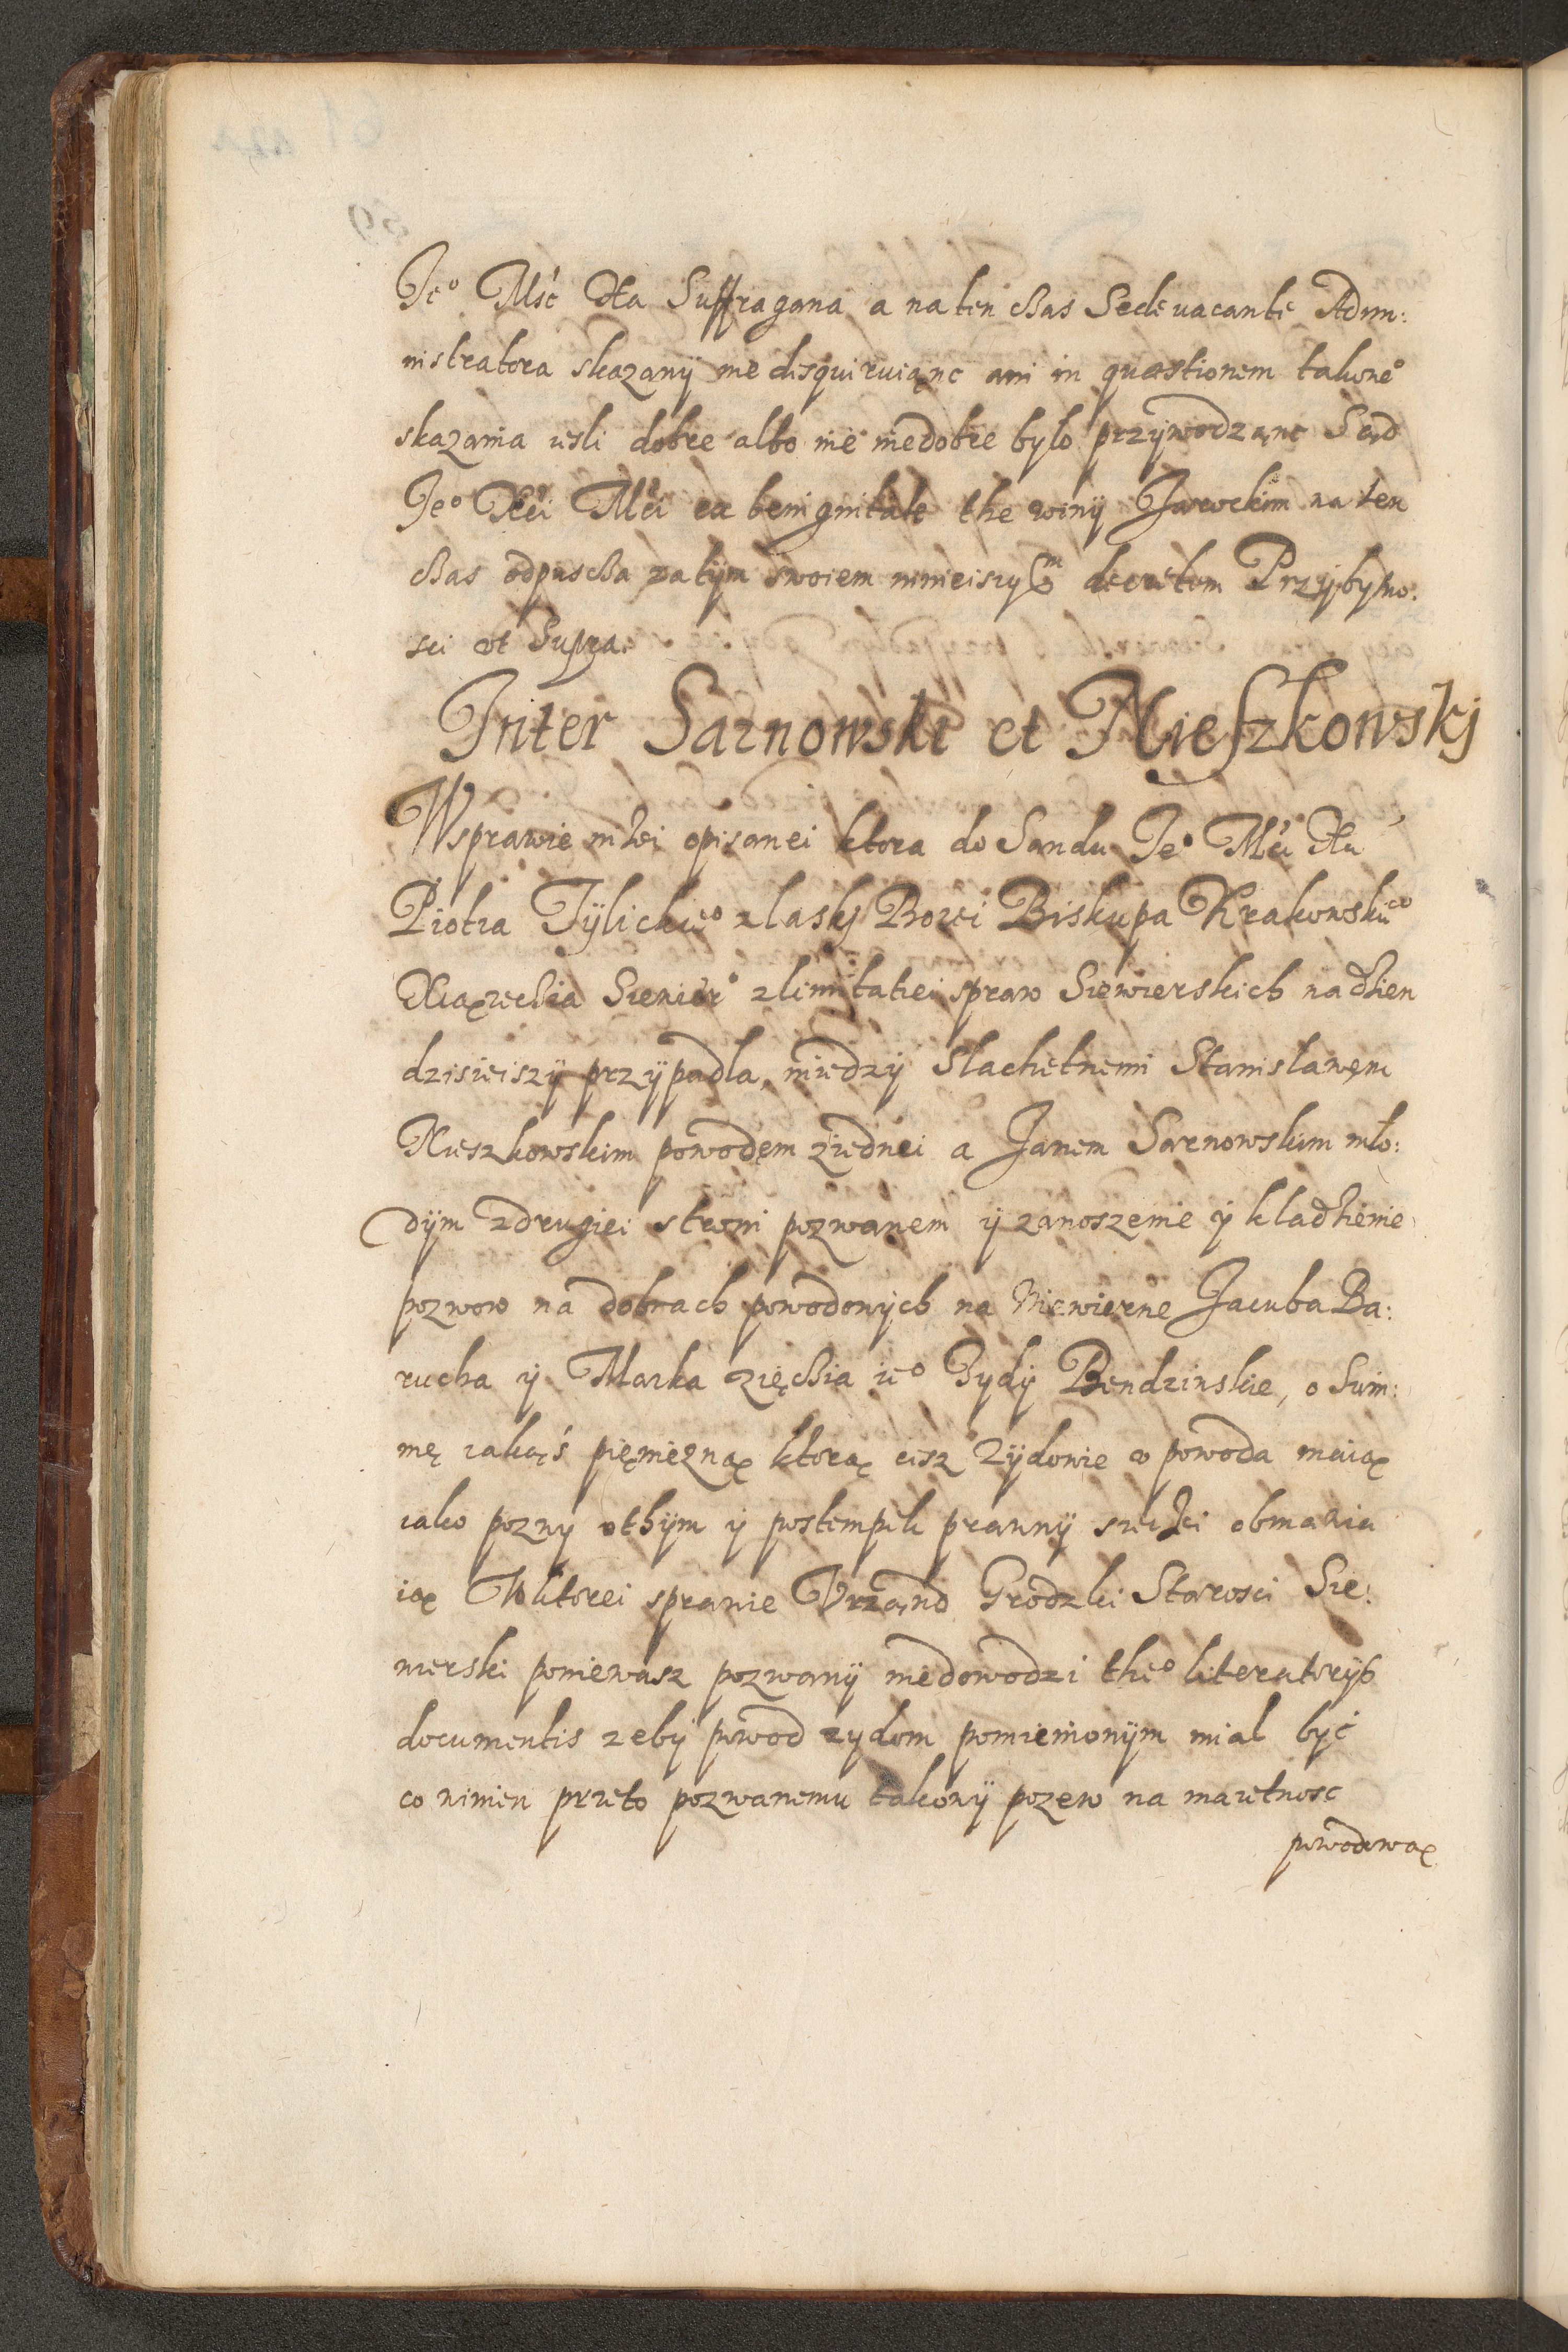 Je° Mść Xa Suffragana a na ten czas Sede vacante Admi:
nistratora skazany nie disquiruiąnc ani in quæstionem takowe°
skazania iesli dobre albo nie niedobre bylo przywodząnc Sąd
Je° Xći Mći ex benignitate the winy Jarockim na ten
czas odpuscza zatym swoiem ninieiszym decretem Przybytno:
sci vt Supra.
Inter Sarnowski et Nieszkowskj
W sprawie nizei opisanei ktora do Sandu Je° Mći Xa
Piotra Tylickie° z laskj Bozei Biskupa Krakowskie°
Xiązęcia Siewier° z limitatiei spraw Siewierskich na dzien
dzisieiszy przypadla, miedzy Slachetnemi Stanislawęm
Nieszkowskim powodęm z iednei a Janem Sarnowskim mło:
dym z drugiei stroni pozwanem y zanoszenie y kladzienie
pozwow na dobrach powodowych na Niewierne Jacuba Ba:
rucha y Marka zięcia ie° Zydy Bendzinskie, o Sum:
mę iakąś pięniezną ktorą cisz Zydowie v powoda maią
iako pozwy o thym y postempek prawny szerzei obmawia
ią W ktorei sprawie Vrzand Grodzki Starosci Sie:
wierski poniewasz pozwany niedowodzi the° literatoryis
documentis zeby powod zydom pomienionym mial być
co winien przeto pozwanemu takowy pozew na maietnosc
powodową